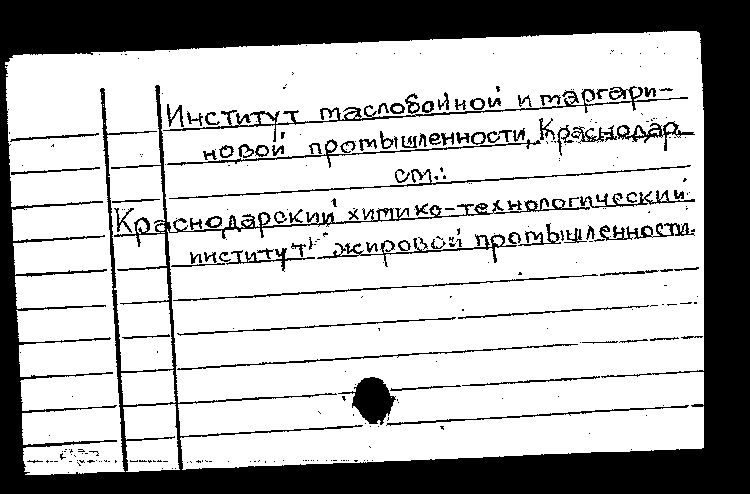 Институт маслобойной и маргари-
новой промышленности, Краснодар
см.:
Краснодарский химико-технологический
институт жировой промышленности.